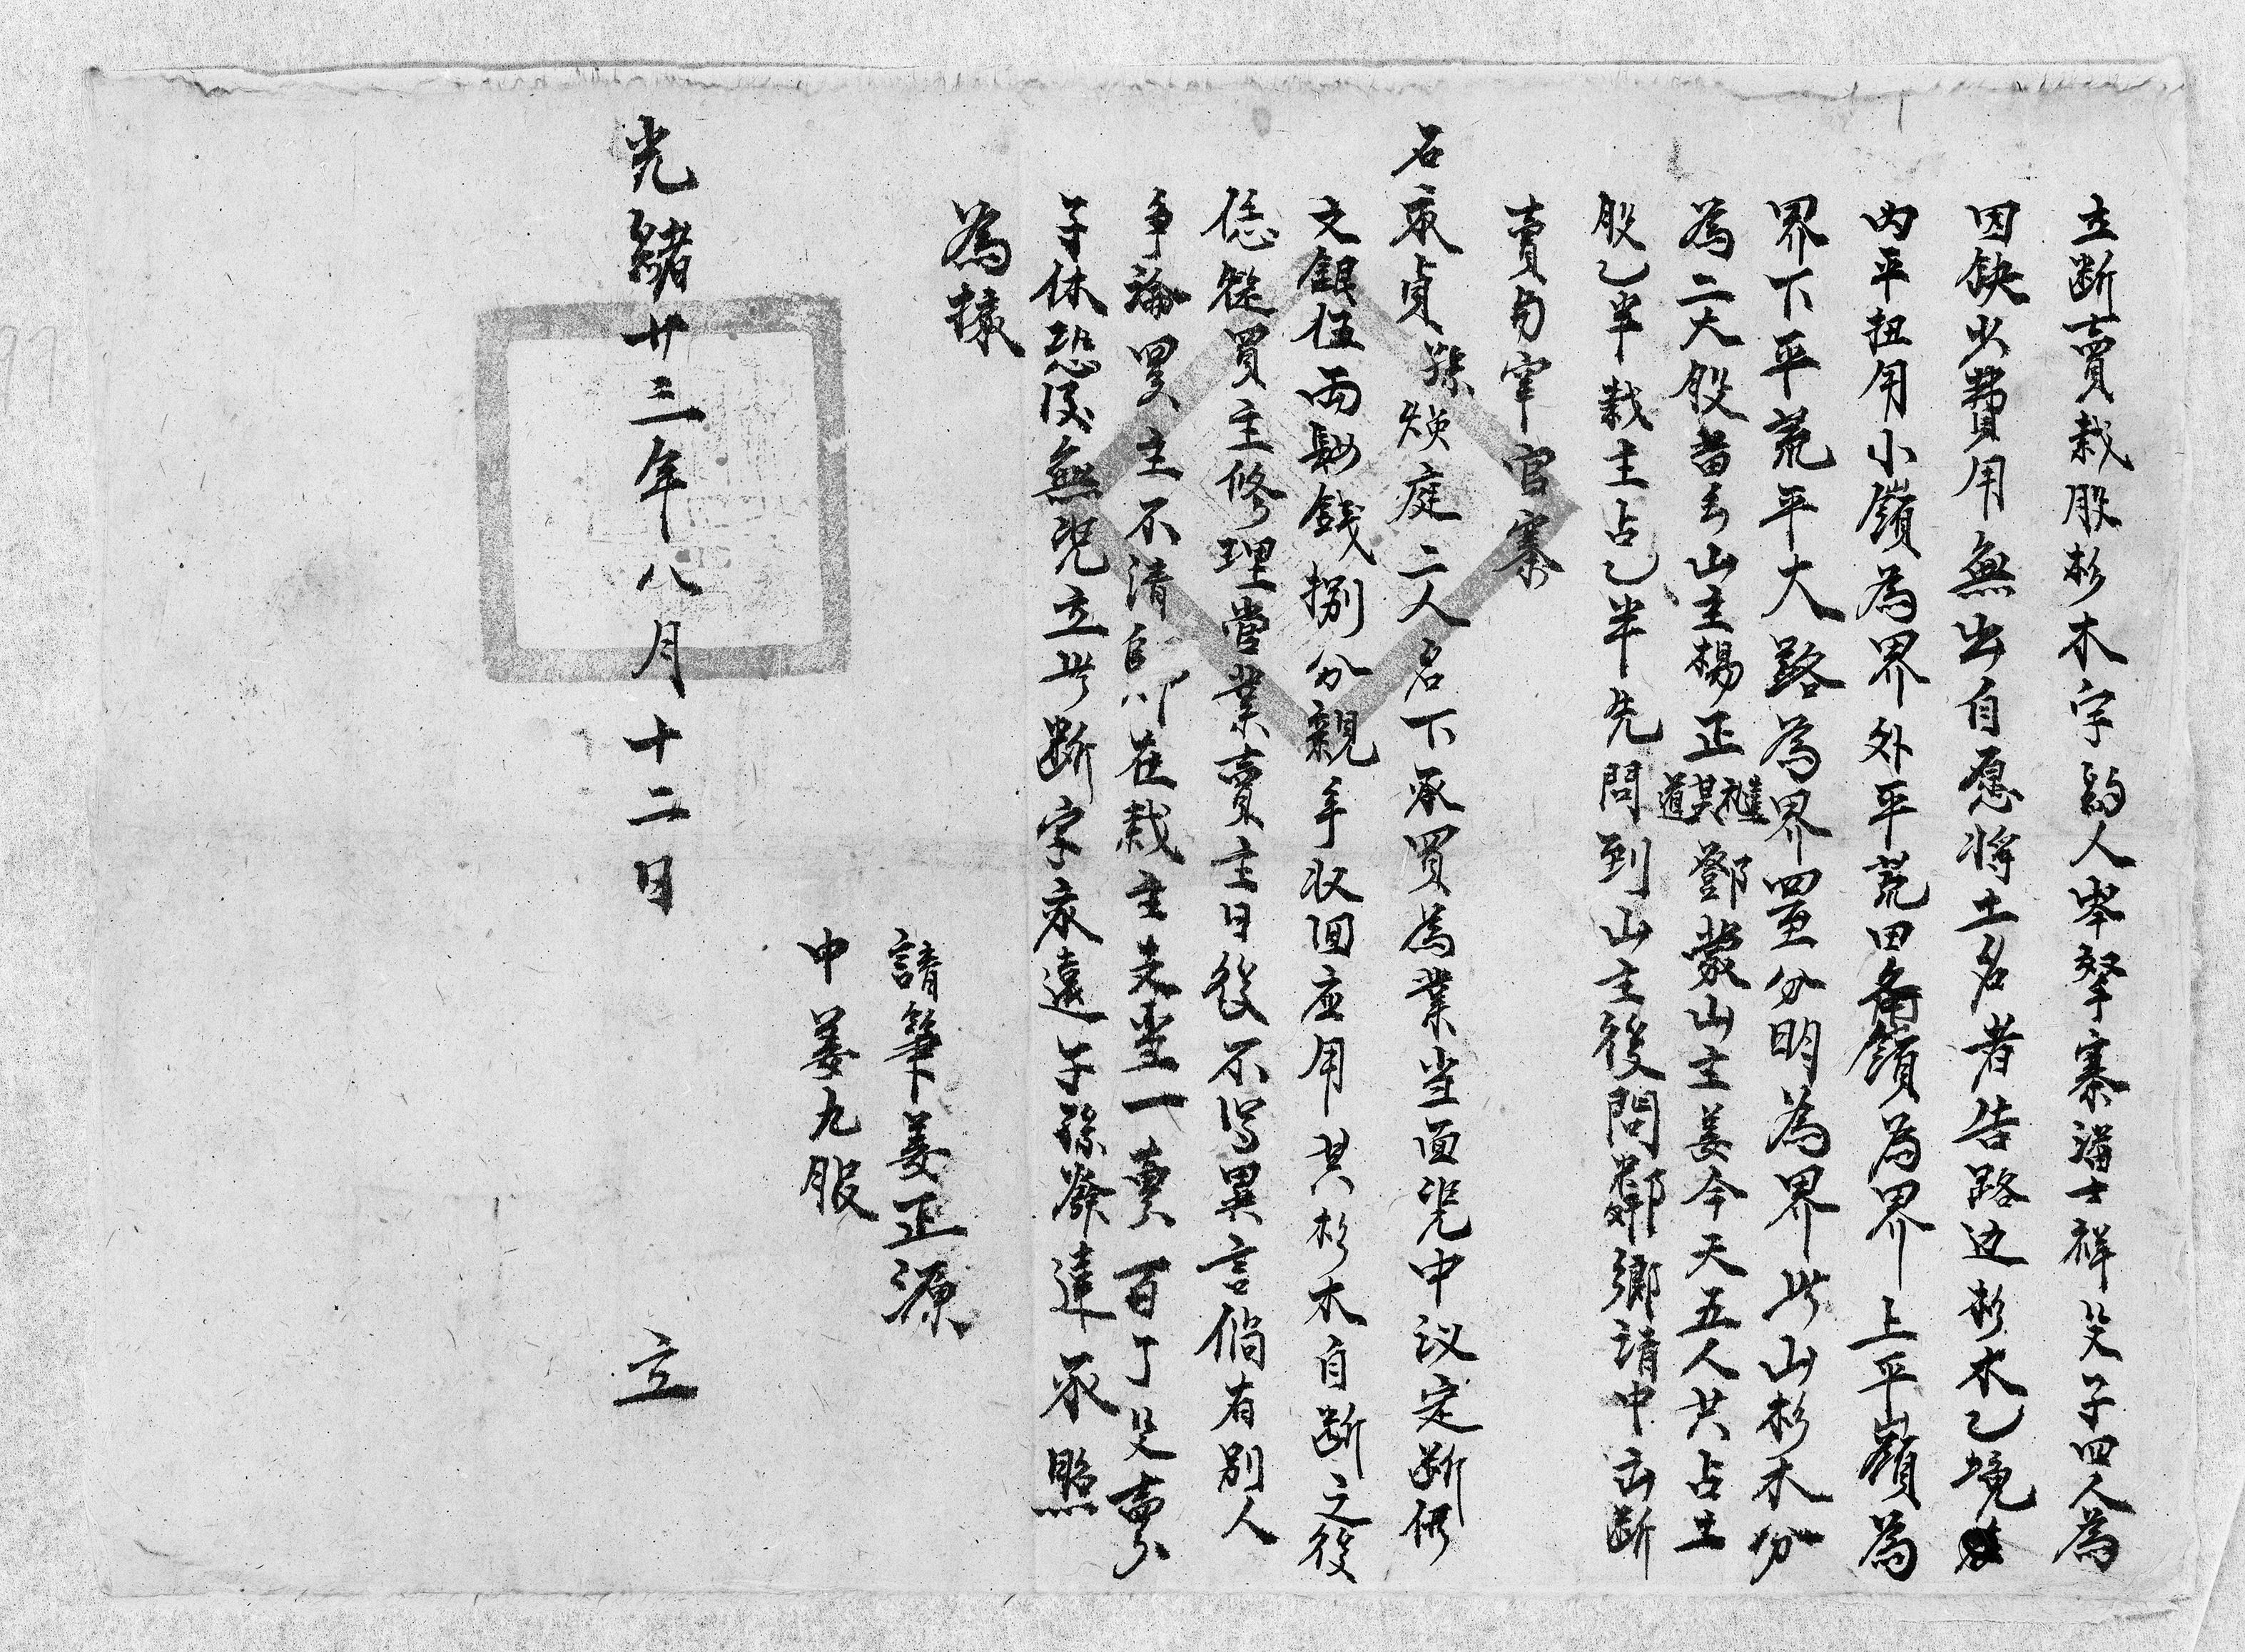 立断賣栽股杉木字約人岑孥寨潘士祥父子四人為
因缺少費用無出自愿将土名者告路边杉木乙境
内平扭用小嶺為界外平荒田角嶺為界上平嶺為
界下平荒平大路為界四至分明為界此山杉木分
為二大股昔有山主楊正禮其道鄧蒙山主姜今天五人共占土
股乙半栽主占乙半先問到山主後問鄰鄉請中出断
賣与宰官寨
石承貞孫煥庭二人名下承買為業当面凭中议定断價
文銀伍両肆錢捌分親手収回应用其杉木自断之後
恁從買主修理管業賣主日後不得異言倘有別人
争論買主不清俱在栽主夫当一賣百了父賣
子休恐後無凭立此断字承遠子孫發達承照
為據
請筆姜正源
中姜九服
光緒廿三年八月十二日 立